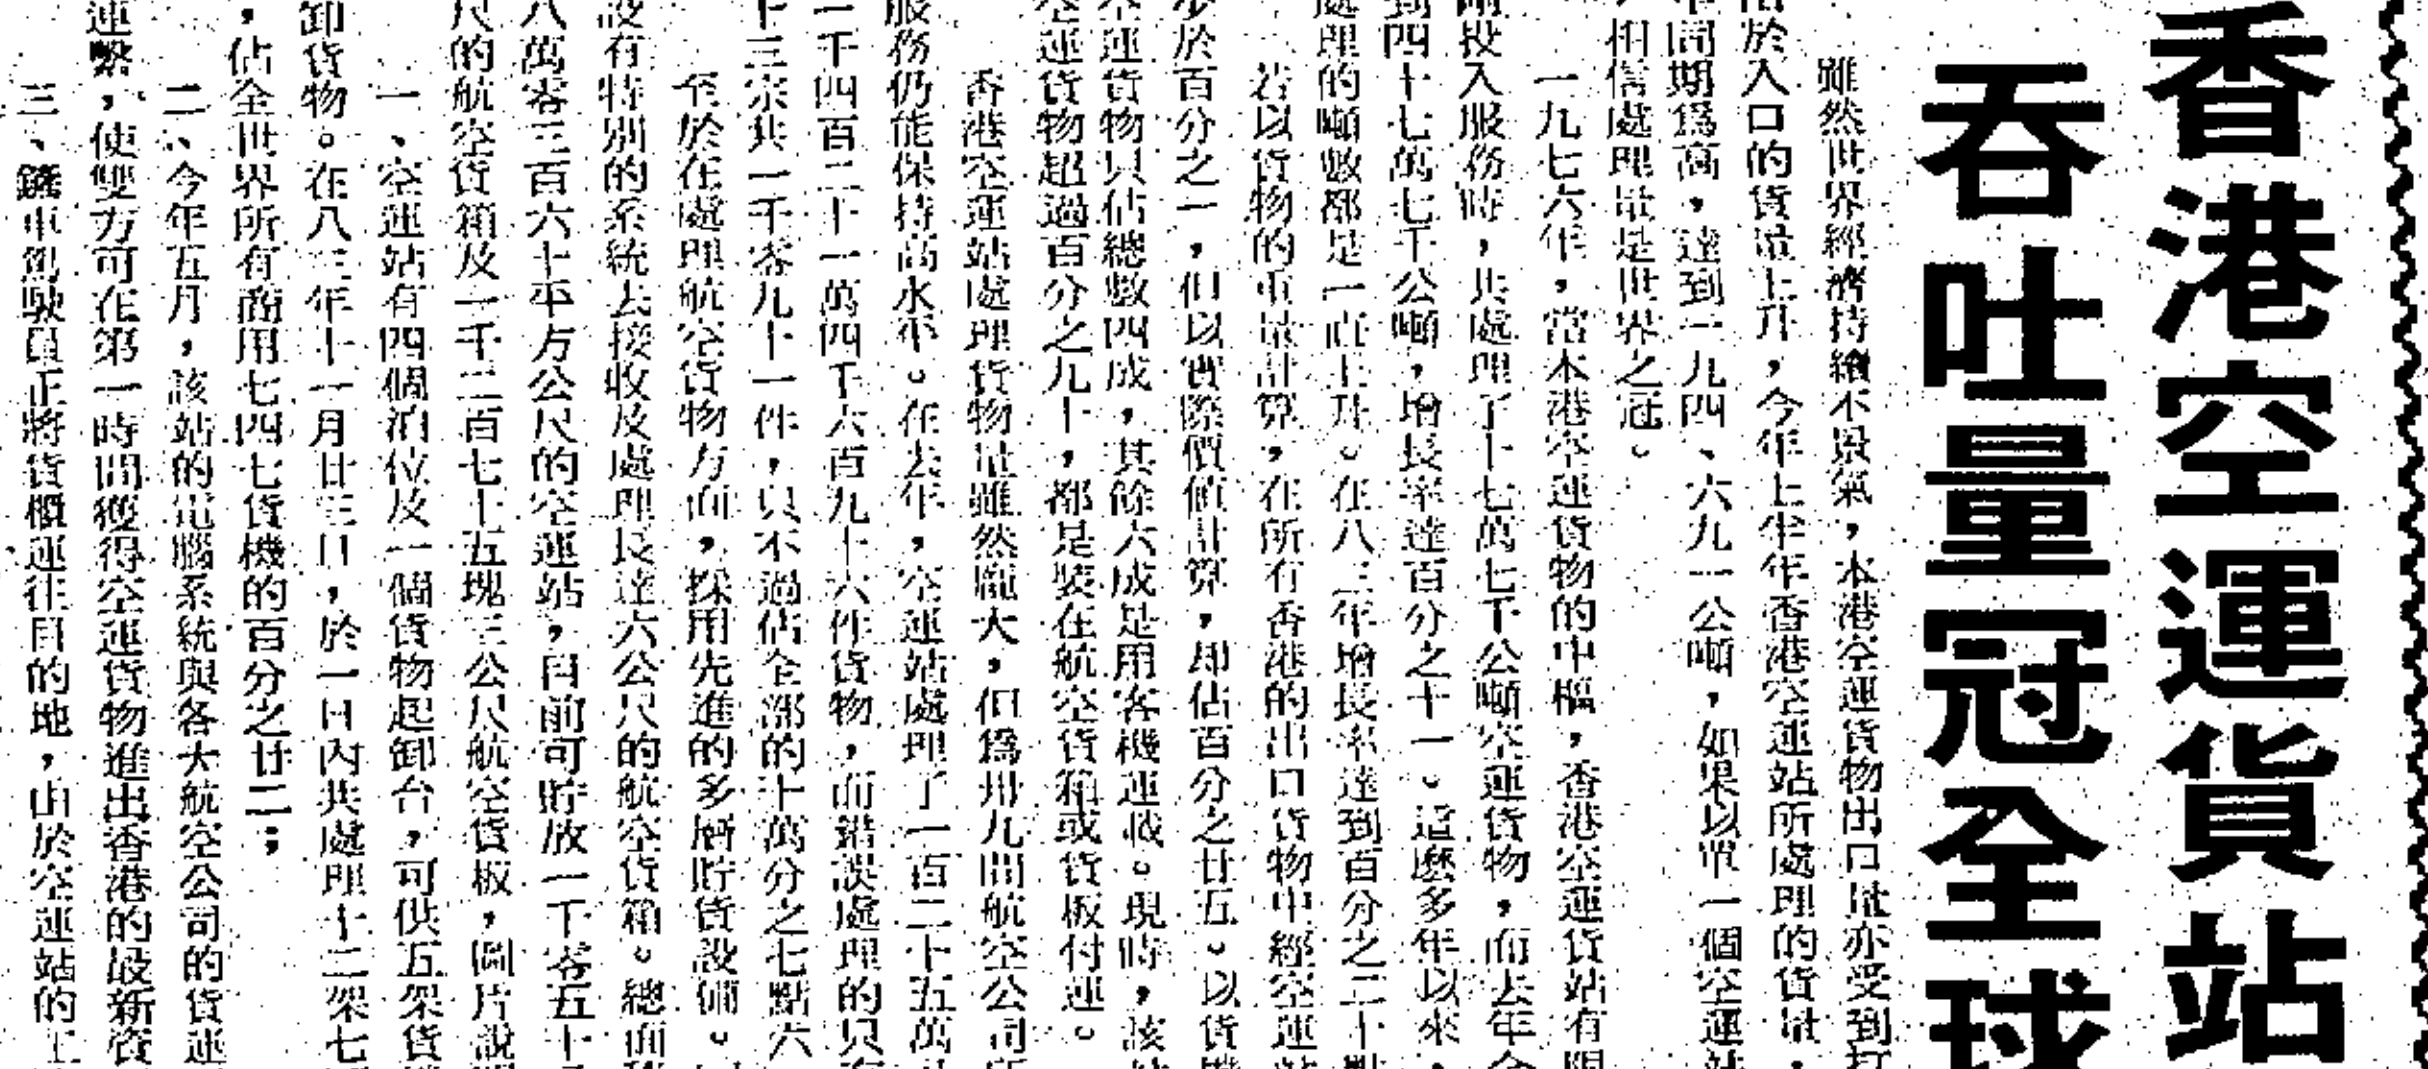 香港空運貨站
吞吐量冠全球
雖然世界經濟持續不景氣，本港空運貨物出口量亦受到打
由於入口的貨量上升，今年上半年香港空運站所處理的貨量，
年同期爲高，達到一九四、六九一公噸，如果以單一個空運站
，相信處理量是世界之冠。
一九七六年，當本港空運貨物的中樞，香港空運貨站有限
投入服務時，共處理了十七萬七千公噸空運貨物，而去年全
到四十七萬七千公噸，增長率達百分之十一。這麽多年以來，
處理的噸數都是一直上升。在八三年增長率達到百分之二十點
若以貨物的重量計算，在所有香港的出口貨物中經空運站
少於百分之一，但以實際價值計算，却佔百分之廿五。以貨機
空運貨物只佔總數四成，其餘六成是用客機運載。現時，該站
空運貨物超過百分之九十，都是裝在航空貨箱或貨板付運。
香港空運站處理貨物量雖然龐大，但爲卅九間航空公司所
服務仍能保持高水平。在去年，空運站處理了一百二十五萬
一千四百二十一萬四千六百九十六件貨物，而錯誤處理的只有
十三宗共一千零九十一件，只不過佔全部的十萬分之七點六
至於在處理航空貨物方面，採用先進的多層貯貨設備。
設有特別的系統去接收及處理長達六公尺的航空貨箱。總面積
八萬零三百六十平方公尺的空運站，目前可貯放一千零五十
尺的航空貨箱及一千二百七十五塊三公尺航空貨板，圖片說明
一、空運站有四個泊位及一個貨物起卸台，可供五架貨機
卸貨物。在八三年十一月廿三日，於一日內共處理十二架七
，佔全世界所有商用七四七貨機的百分之廿二；
二、今年五月，該站的電腦系統與各大航空公司的貨運
連繫，使雙方可在第一時間獲得空運貨物進出香港的最新資
三、鏟車駕駛員正將貨櫃運往目的地，由於空運站的工